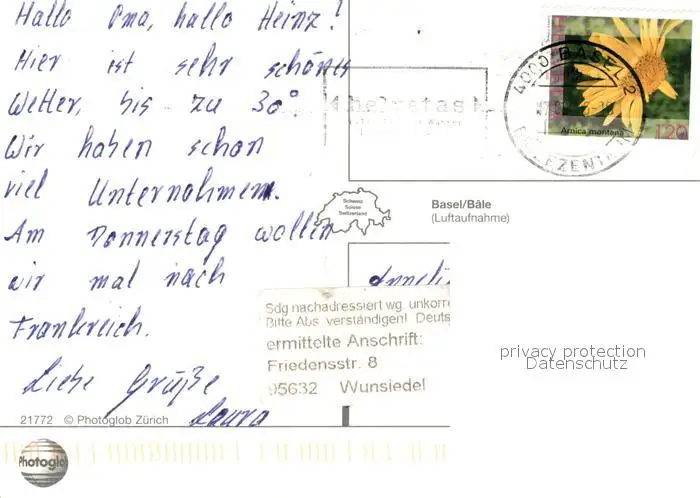 Hallo Oma, hallo Heinz!
Hier ist sehr schönes
Wetter, bis zu 30°.
Wir haben schon
viel Unternohmem.
Am Donnerstag wollen
wir mal nach
Frankreich.
Liebe Grüße
Laura
21772 © Photoglob Zürich
Photoglob
4000 BASEL 2
Arnica montana
120
Schweiz
Suisse
Switzerland
Basel/Bâle
(Luftaufnahme)
Sdg nachadressiert wg. unkorre
Bitte Abs verständigen! Deuts
ermittelte Anschrift:
Friedensstr. 8
95632 Wunsiedel
privacy protection
Datenschutz